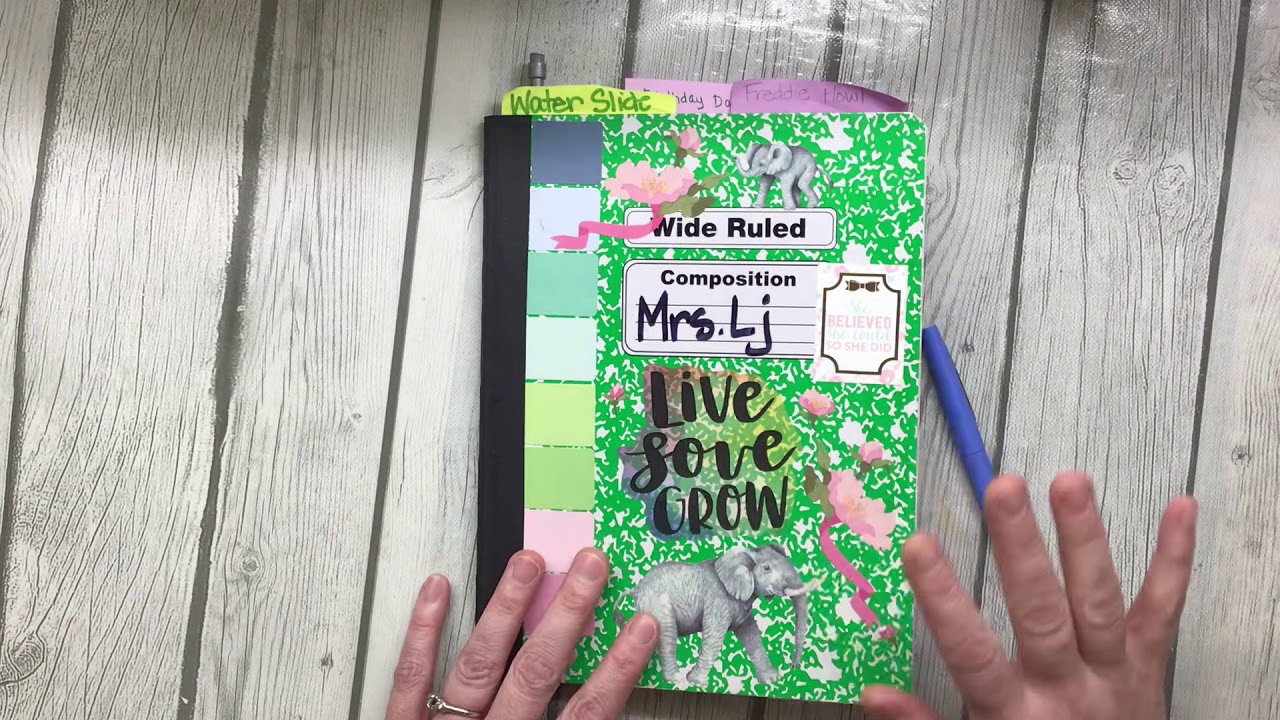 Water Slide
Birthday Da
Freddie Howl
Wide Ruled
Composition
Mrs. Lj
She
BELIEVED
she could
SO SHE DID
Live
Love
GROW